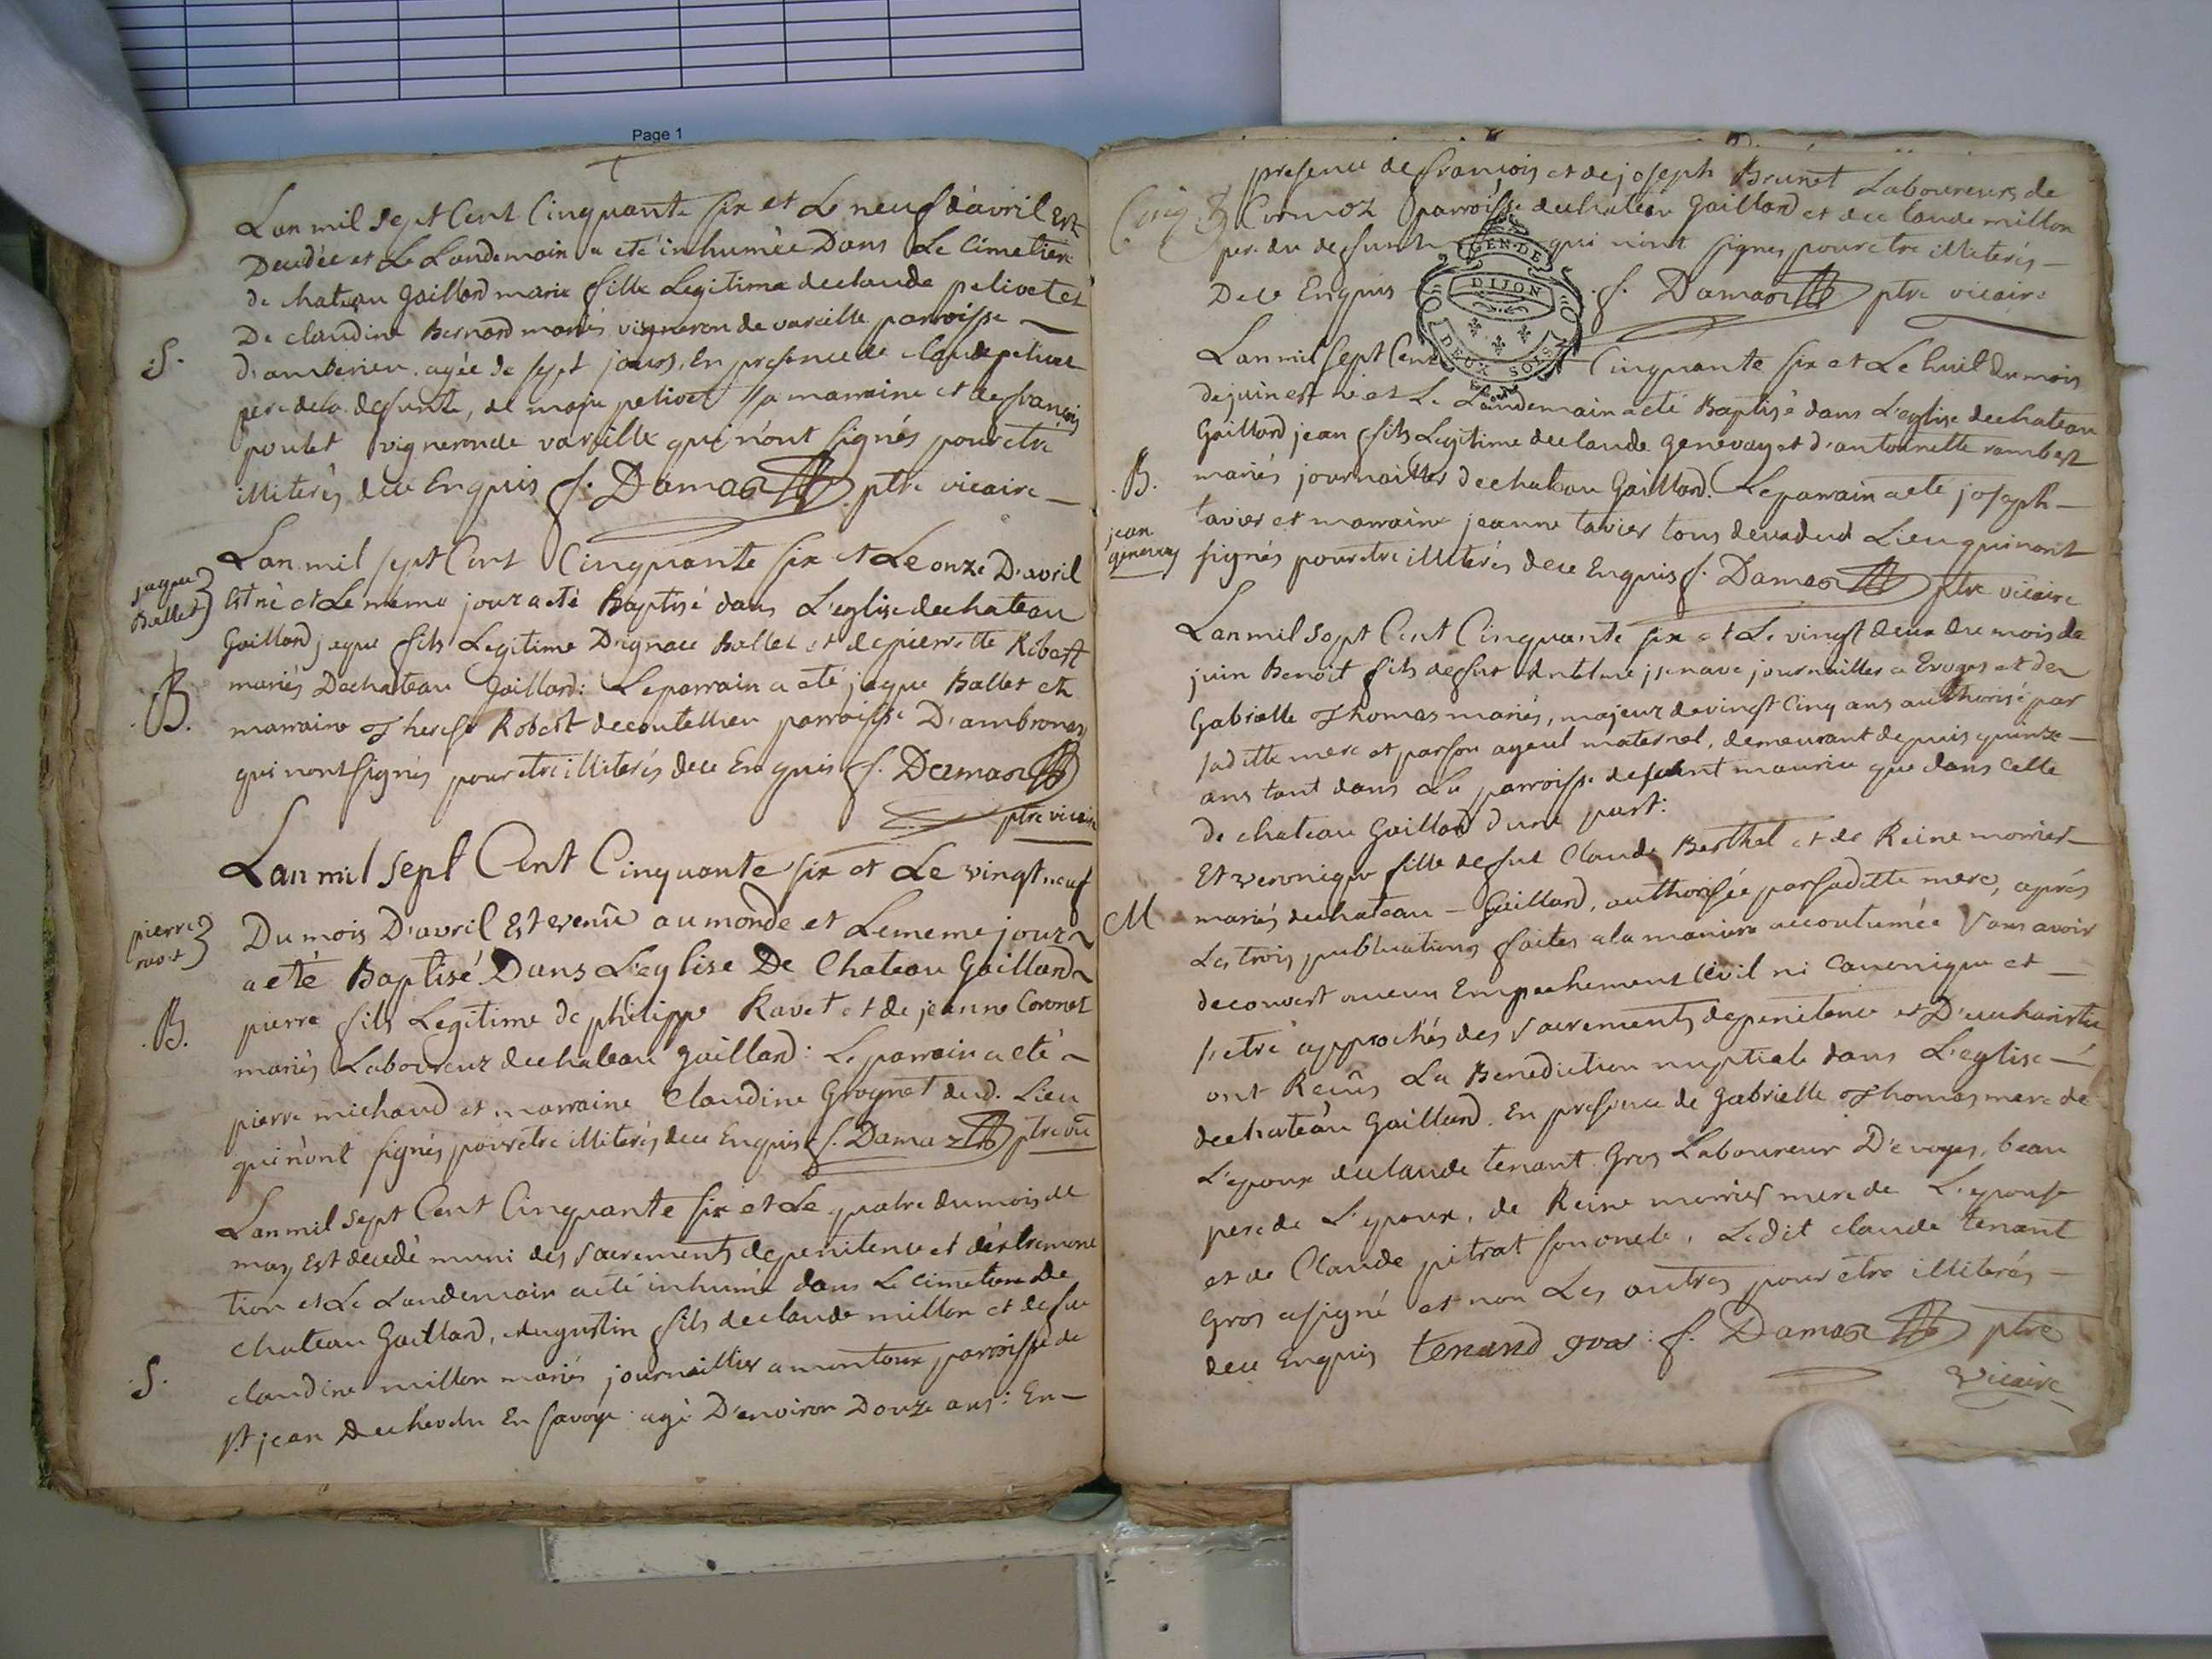 Page 1
Lan mil sept Cent Cinquante six et Le neuf d'avril Est
Decedée et Le Landemain a eté inhumée Dans Le Cimetiere
de chateau Gaillard marie fille Legitime declaude pelivet et
De claudine Bernard mariés vigneron de vareille parroisse
d'amberieu. agée de sept jours. En presence de claude pelivet
.S.
pere dela defunte, de marie pelivet sa marraine et de françois
poulet vigneron de vareille qui n'ont signés pour etre
illiterés dece Enquis f. Damaz ptre vicaire
Lan mil sept Cent Cinquante six et Le onze D'avril
jaque
Ballet
Est né et Le meme jour a eté Baptisé dans L'eglise dechateau
Gaillard jaque fils Legitime Dignace Ballet et de pierrette Robert
mariés Dechateau Gaillard: Le parrain a eté jaque Ballet et
.B.
marraine Therese Robert decoutellieu parroisse D'ambronay
qui n'ont signés pour etre illiterés dece Enquis f. Damaz
ptre vicaire
Lan mil sept Cent Cinquante six et Le vingt neuf
pierre
ravet
Du mois D'avril Est venû au monde et Lememe jour
a eté Baptisé Dans L'eglise De Chateau Gaillard
pierre fils Legitime de philippe Ravet et de jeanne Coronet
.B.
mariés Laboureur dechateau Gaillard: Le parrain a eté
pierre michaud et marraine Claudine Grognet dud. Lieu
qui n'ont signés pour etre illiterés dece Enquis f. Damaz ptre vic
Lan mil sept Cent Cinquante six et Le quatre du mois de
may Est decedé muni des sacrements de penitence et d'extremonc
tion et Le Landemain a eté inhumé dans Le cimetiere De
chateau Gaillard, augustin fils declaude millon et defue
claudine millon mariés journaillier a montoux parroisse de
.S.
st jean dechevelu En savoye: agé D'environ Douze ans: En
presence de françois et de joseph Brunet Laboureurs de
Cinq
Cormoz parroisse dechateau Gaillard et de claude millon
pere du defunt qui n'ont signés pour etre illiterés
Dece Enquis f. Damaz ptre vicaire
GEN. DE
DIJON
DEUX SOLS
Lan mil sept Cent Cinquante six et Le huit du mois
dejuin est né et Le Landemain a eté Baptisé dans L'eglise dechateau
Gaillard jean fils Legitime declaude genevay et d'antoinette rambert
.B.
mariés journaillier dechateau Gaillard. Le parrain a eté joseph
jean
genevay
tavier et marraine jeanne tavier tous deux dud Lieu qui n'ont
signés pour etre illiterés dece Enquis f. Damaz ptre vicaire
Lan mil sept Cent Cinquante six et Le vingt deux du mois de
juin Benoit fils defut journaillier a Evoges et de
Gabrielle Thomas mariés, majeur devingt Cinq ans authorisé par
saditte mere et par son ayeul maternel, demeurant depuis quinze
ans tant dans La parroisse desaint maurice que dans Celle
de chateau Gaillard d'une part:
Et veronique fille defut Claude Berthet et de Reine morrier
M
mariés dechateau - Gaillard, authorisée par saditte mere, aprés
Les trois publications faites ala maniere accoutumée sans avoir
decouvert aucun Empechement Civil ni Canonique et
s'etre approchés des sacrements depenitence et D'eucharistie
ont Recûs La Benediction nuptiale dans L'eglise
dechateau Gaillard. En presence de Gabrielle Thomas mere de
L'epoux declaude tenant Gros Laboureur D'evoges, beau
pere de L'epoux, de Reine morrier mere de L'epouse
et de Claude pitrat son oncle, Ledit claude tenant
Gros a signé et non Les autres pour etre illiterés
dece Enquis tenand gros: f. Damaz ptre
vicaire